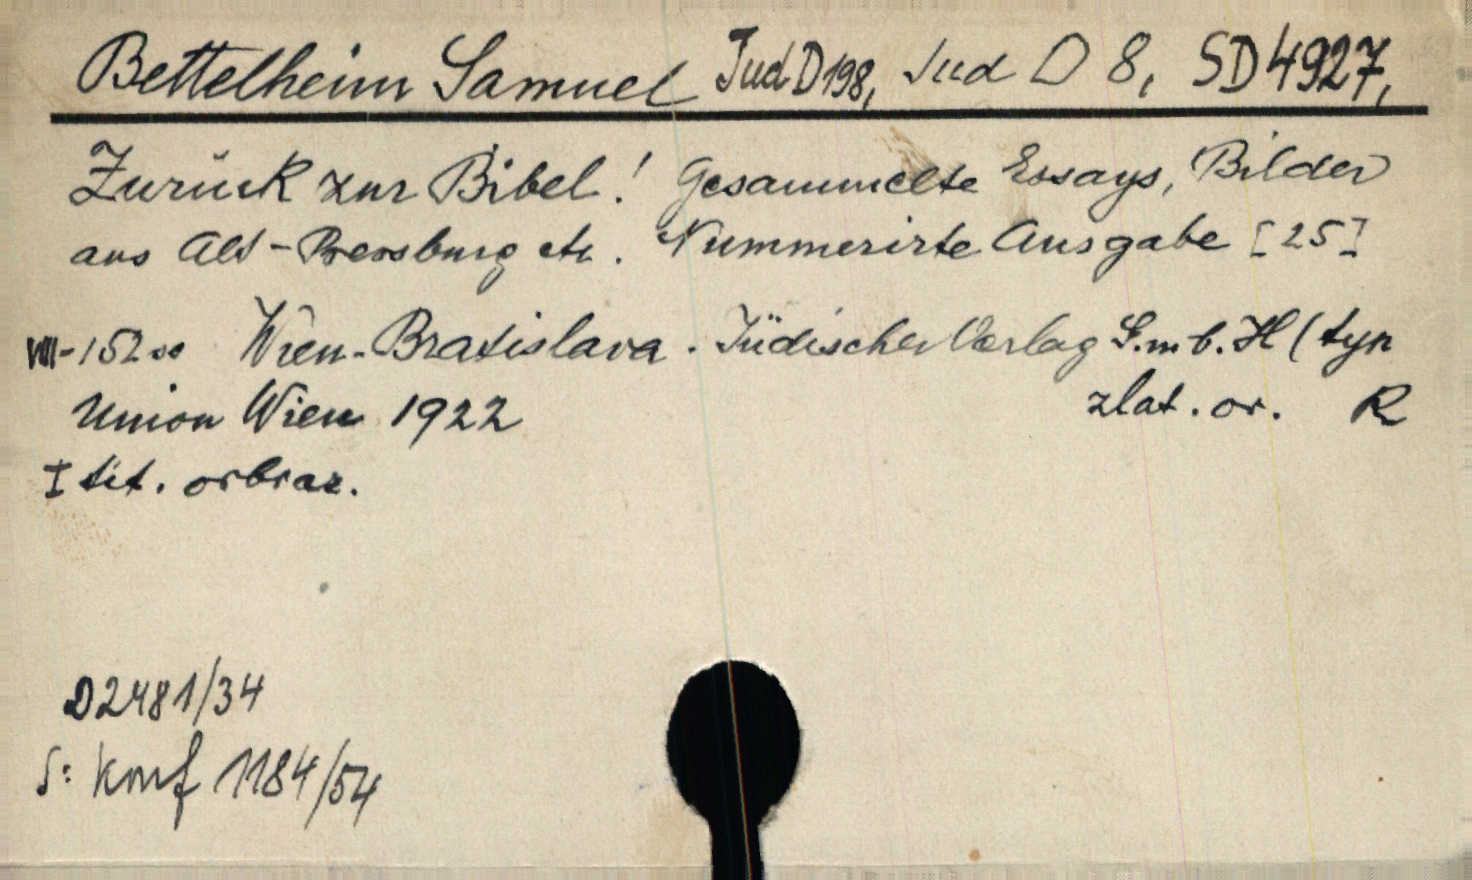 Bettelheim Samuel Jud D 198, Jud D 8, SD 4927,
Zurück zur Bibel! Gesammelte Essays, Bilder
aus Alt-Pressburg etc. Nummerirte Ausgabe [25]
VIII-152 oo Wien-Bratislava. Jüdischer Verlag G.m.b.H (typ
Union Wien 1922 zlat. or. R
I tit. orbraz.
D 2481/34
S: Konf 1184/54